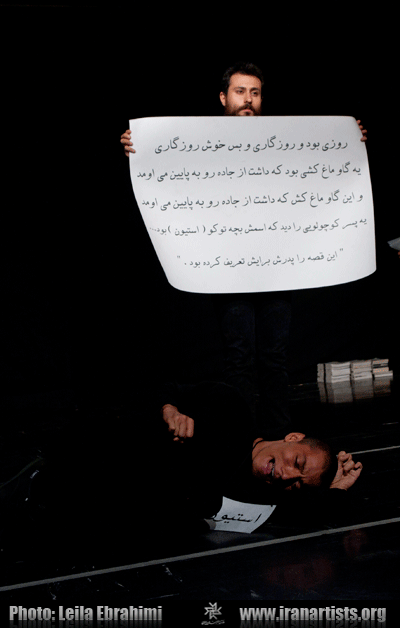 روزی بود و روزگاری و بس خوش روزگاری
یه گاو ماغ کشی بود که داشت از جاده رو به پایین می اومد
و این گاو ماغ کش که داشت از جاده رو به پایین می اومد
یه پسر کوچولویی را دید که اسمش بچه توکو ( استیون ) بود...
" این قصه را پدرش برایش تعریف کرده بود . "
استیون
Photo: Leila Ebrahimi
www.iranartists.org